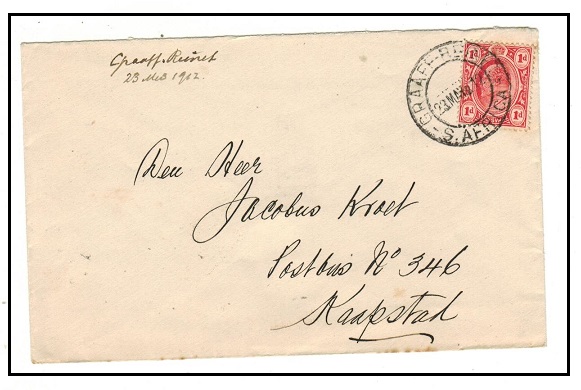 Graaff-Reinet
23 Mei 1912
GRAAFF-REINET
S. AFRICA
1d 1d
1d 1d
Den Heer
Jacobus Kroet
Postbus No 346
Kaapstad